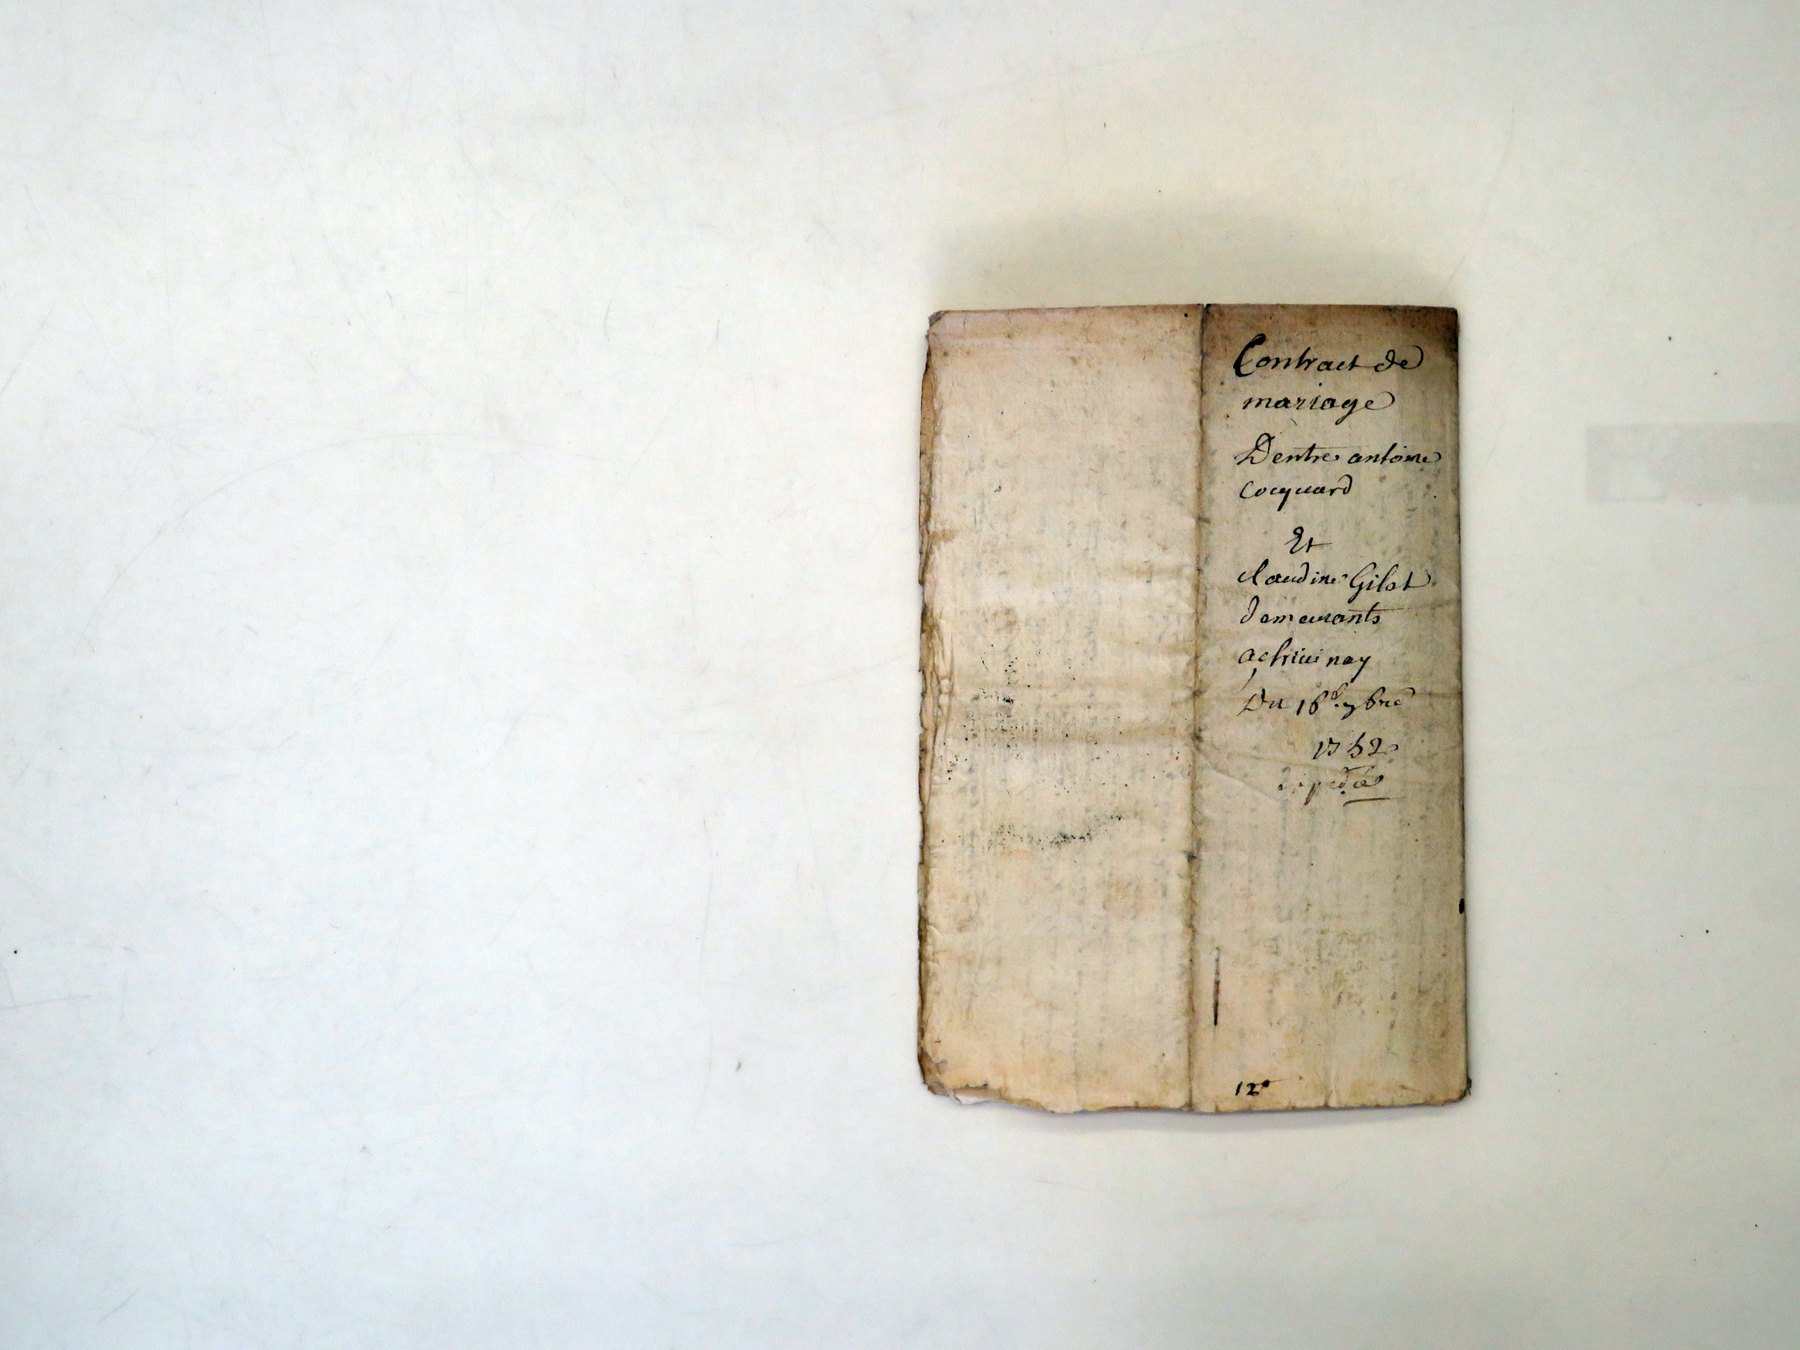 Contract de
mariage
Dentre antoine
Cocquard
Et
claudine Gilot
demeurants
a chivinay
Du 16e 7bre
1752
expedié
12